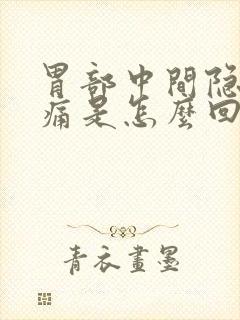 胃部中間隐
痛是怎麼回
青衣畫墨